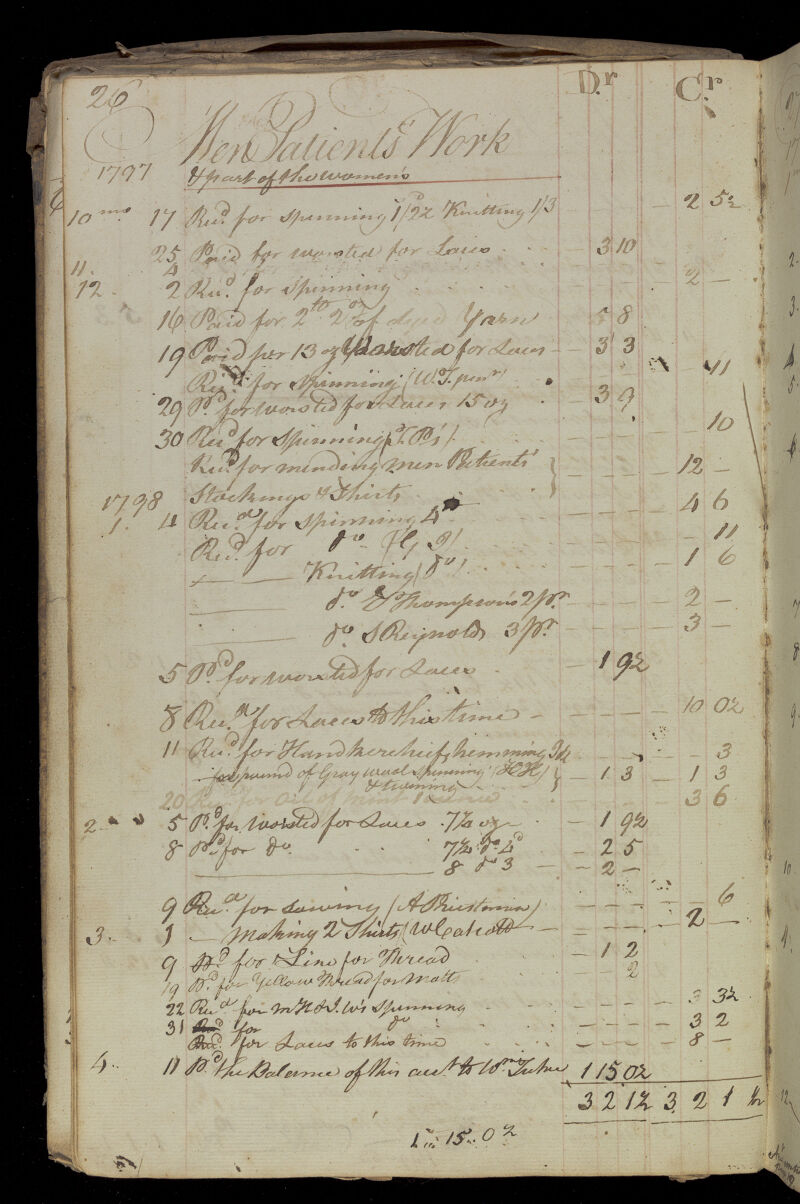 26
Dr Cr
Men Patients' Work
1797 & part of the women's
10 mo 17 Recd. for spinning 1/2½ Knitting 1/3 2 5½
25 Paid for worsted for Laces 3 10
11. 4
12 2 Recd. for Spinning 2 —
16 Paid for 2 lb 2 oz of dyed Yarn 5 8
19 Paid per 13 oz Worsted for Laces 3 3
Recd. for spinning (W.T. 11
29 Pd. for worsted for Laces 15 oz 3 9
30 Recd for Spinning 10
Recd for mending men Patients' 12 —
1798 Stockings & Shirts
1. 4 Recd. for spinning 4 4 6
Recd. for do 11
Knitting do 1 6
do Thompson's 2 pr. 2 —
do S Reynolds 3 pr. 3 —
5 Pd for worsted for Laces 1 9½
8 Recd for Laces to this time 10 0½
11 Recd. for Handkerchief hemming 3
pound of Gray wool Spinning (HH) 1 3 1 3
& twining
20 3 6
2 5 Pd. for worsted for Laces 7½ oz 1 9½
8 Pd for do. 7½ do 4d 2 5
8 do 3 2 —
9 Recd. for sewing (A Priestman) 6
3. 1 — making 2 Shirts 2 —
9 Pd. for Line for Thread 1 2
19 Pd. for Yellow Thread for Matts 2
22 Recd for Spinning 3 3½
31 for do 3 2
Recd. for Laces to this time 8 —
4. 11 Pd the Balance of this acct. to Wm Tuke 1 15 0½
3 2 1½ 3 2 1½
1 " 15 .. 0½